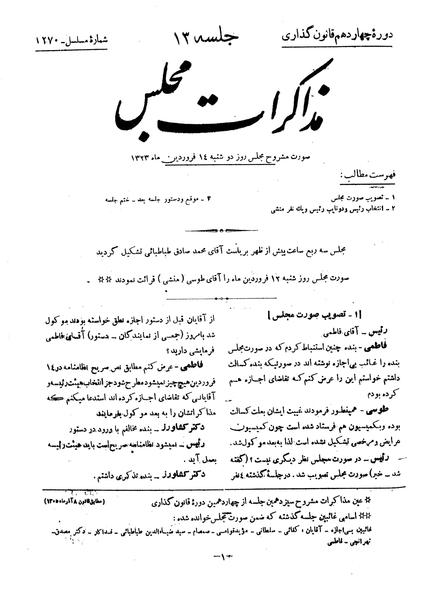 دورهٔ چهاردهم قانون گذاری
جلسه ۱۳
شمارهٔ مسلسل - ۱۲۷۰
مذاکرات مجلس
صورت مشروح مجلس روز دو شنبه ۱۴ فروردین ماه ۱۳۲۳
فهرست مطالب:
۱ - تصویب صورت مجلس
۲ - انتخاب رئیس و دو نایب رئیس و یک نفر منشی
۳ - موقع و دستور جلسه بعد - ختم جلسه
مجلس سه ربع ساعت پیش از ظهر بریاست آقای محمد صادق طباطبائی تشکیل گردید
صورت مجلس روز شنبه ۱۲ فروردین ماه را آقای طوسی (منشی) قرائت نمودند ※※
[۱ - تصویب صورت مجلس]
رئیس - آقای فاطمی
فاطمی - بنده چنین استنباط کردم که در صورت مجلس
بنده را غائب بی‌اجازه نوشته اند در صورتیکه بنده کسالت
داشتم خواستم این را عرض کنم که تقاضای اجازه هم
کرده بودم
طوسی - همینطور فرمودند غیبت ایشان بعلت کسالت
بوده و بکمیسیون هم فرستاده شده است چون کمیسیون
عرایض و مرخصی تشکیل نشده است لذا به بعد موکول شد.
رئیس - در صورت مجلس نظر دیگری نیست؟ (گفته
شد - خیر) صورت مجلس تصویب شد. در جلسهٔ گذشته ۴ نفر
از آقایان قبل از دستور اجازه نطق خواسته بودند موکول
شد بامروز (جمعی از نمایندگان - دستور) آقای فاطمی
فرمایشی دارید؟
فاطمی - عرض کنم مطابق نص صریح نظامنامه در ۱۴
فروردین هیچ چیز نمیشود مطرح شود جز انتخاب هیئت رئیسه و
آقایانی که تقاضای اجازه کرده اند استدعا میکنم که
مذاکراتشان را به بعد موکول بفرمایند
دکتر کشاورز - بنده مخالفم با ورود در دستور
رئیس - نمیشود نظامنامه صریح است باید هیئت رئیسه
بعمل آید.
دکتر کشاورز - بنده تذکری داشتم.
※ عین مذاکرات مشروح سیزدهمین جلسه از چهاردهمین دورهٔ قانون گذاری
(مطابق قانون ۸ آذر ماه ۱۳۰۵)
※※ اسامی غائبین جلسه گذشته که ضمن صورت مجلس خوانده شده:
غائبین بی‌اجازه - آقایان: کفائی - سلطانی - مؤید قوامی - صمصام - سید ضیاءالدین طباطبائی - فداکار - دکتر مصدق -
تهرانچی - فاطمی
-۱-